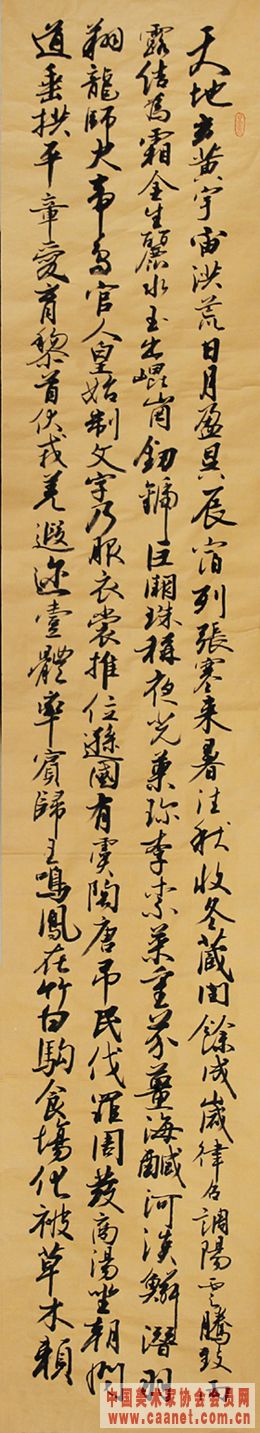 天地玄黄宇宙洪荒日月盈昃辰宿列張寒来暑往秋收冬藏閏餘成歲律呂調陽雲騰致雨
露结為霜金生麗水玉出崐崗劒號巨闕珠稱夜光菓珍李柰菜重芥薑海鹹河淡鱗潛羽
翔龍師火帝鳥官人皇始制文字乃服衣裳推位遜國有虞陶唐吊民伐罪周發商湯坐朝問
道垂拱平章愛育黎首伏戎羌遐迩壹體率賓歸王鳴鳳在竹白駒食場化被草木賴
中国美术家协会会员网
www.caanet.com.cn